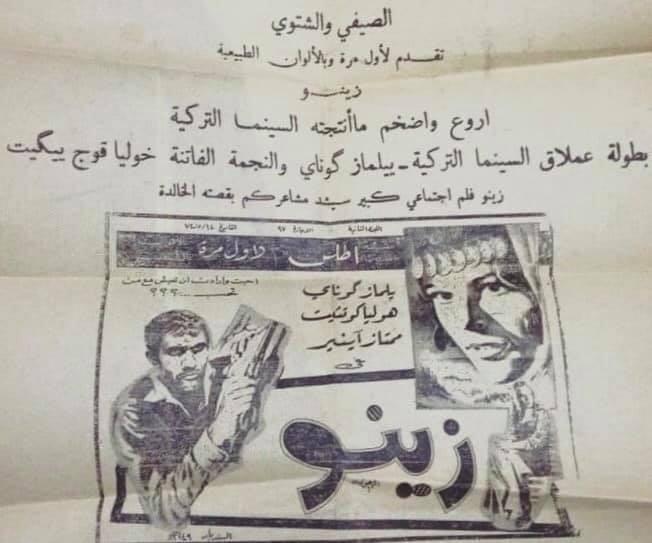 الصيفي والشتوي
تقدم لأول مرة وبالألوان الطبيعية
زينو
اروع واضخم ماأنتجته السينما التركية
بطولة عملاق السينما التركية - ييلماز گوناي والنجمة الفاتنة خوليا قوج ييگيت
زينو فلم اجتماعي كبير سيشد مشاعركم بقصته الخالدة
اطلس - لاول مرة
احبت وارادت ان تعيش مع من
تحب ...؟؟؟
يلماز گوناي
هوليا كوتشيت
ممتاز آينير
في
زينو